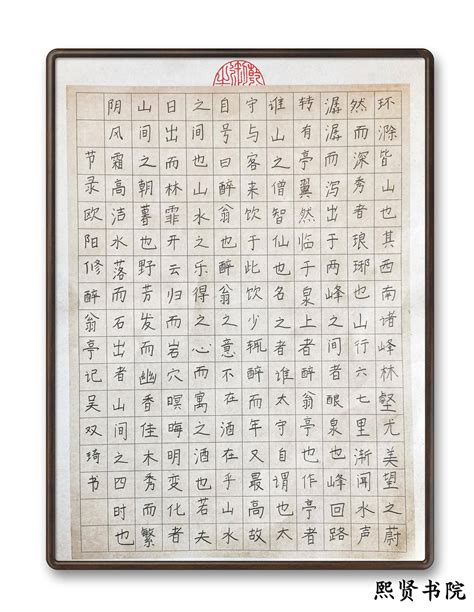 环滁皆山也其西南诸峰林壑尤美望之蔚
然而深秀者琅琊也山行六七里渐闻水声
潺潺而泻出于两峰之间者酿泉也峰回路
转有亭翼然临于泉上者醉翁亭也作亭者
谁山之僧智仙也名之者谁太守自谓也太
守与客来饮于此饮少辄醉而年又最高故
自号曰醉翁也醉翁之意不在酒在乎山水
之间也山水之乐得之心而寓之酒也若夫
日出而林霏开云归而岩穴暝晦明变化者
山间之朝暮也野芳发而幽香佳木秀而繁
阴风霜高洁水落而石出者山间之四时也
节录欧阳修醉翁亭记吴双琦书
熙贤书院